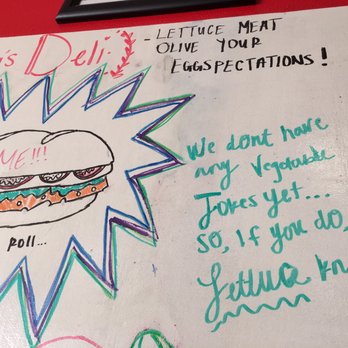 's Deli
- LETTUCE MEAT
OLIVE YOUR
EGGSPECTATIONS!
ME!!!
ROLL...
We dont have
any Vegetable
Jokes yet...
So, If you do,
Lettuce kn